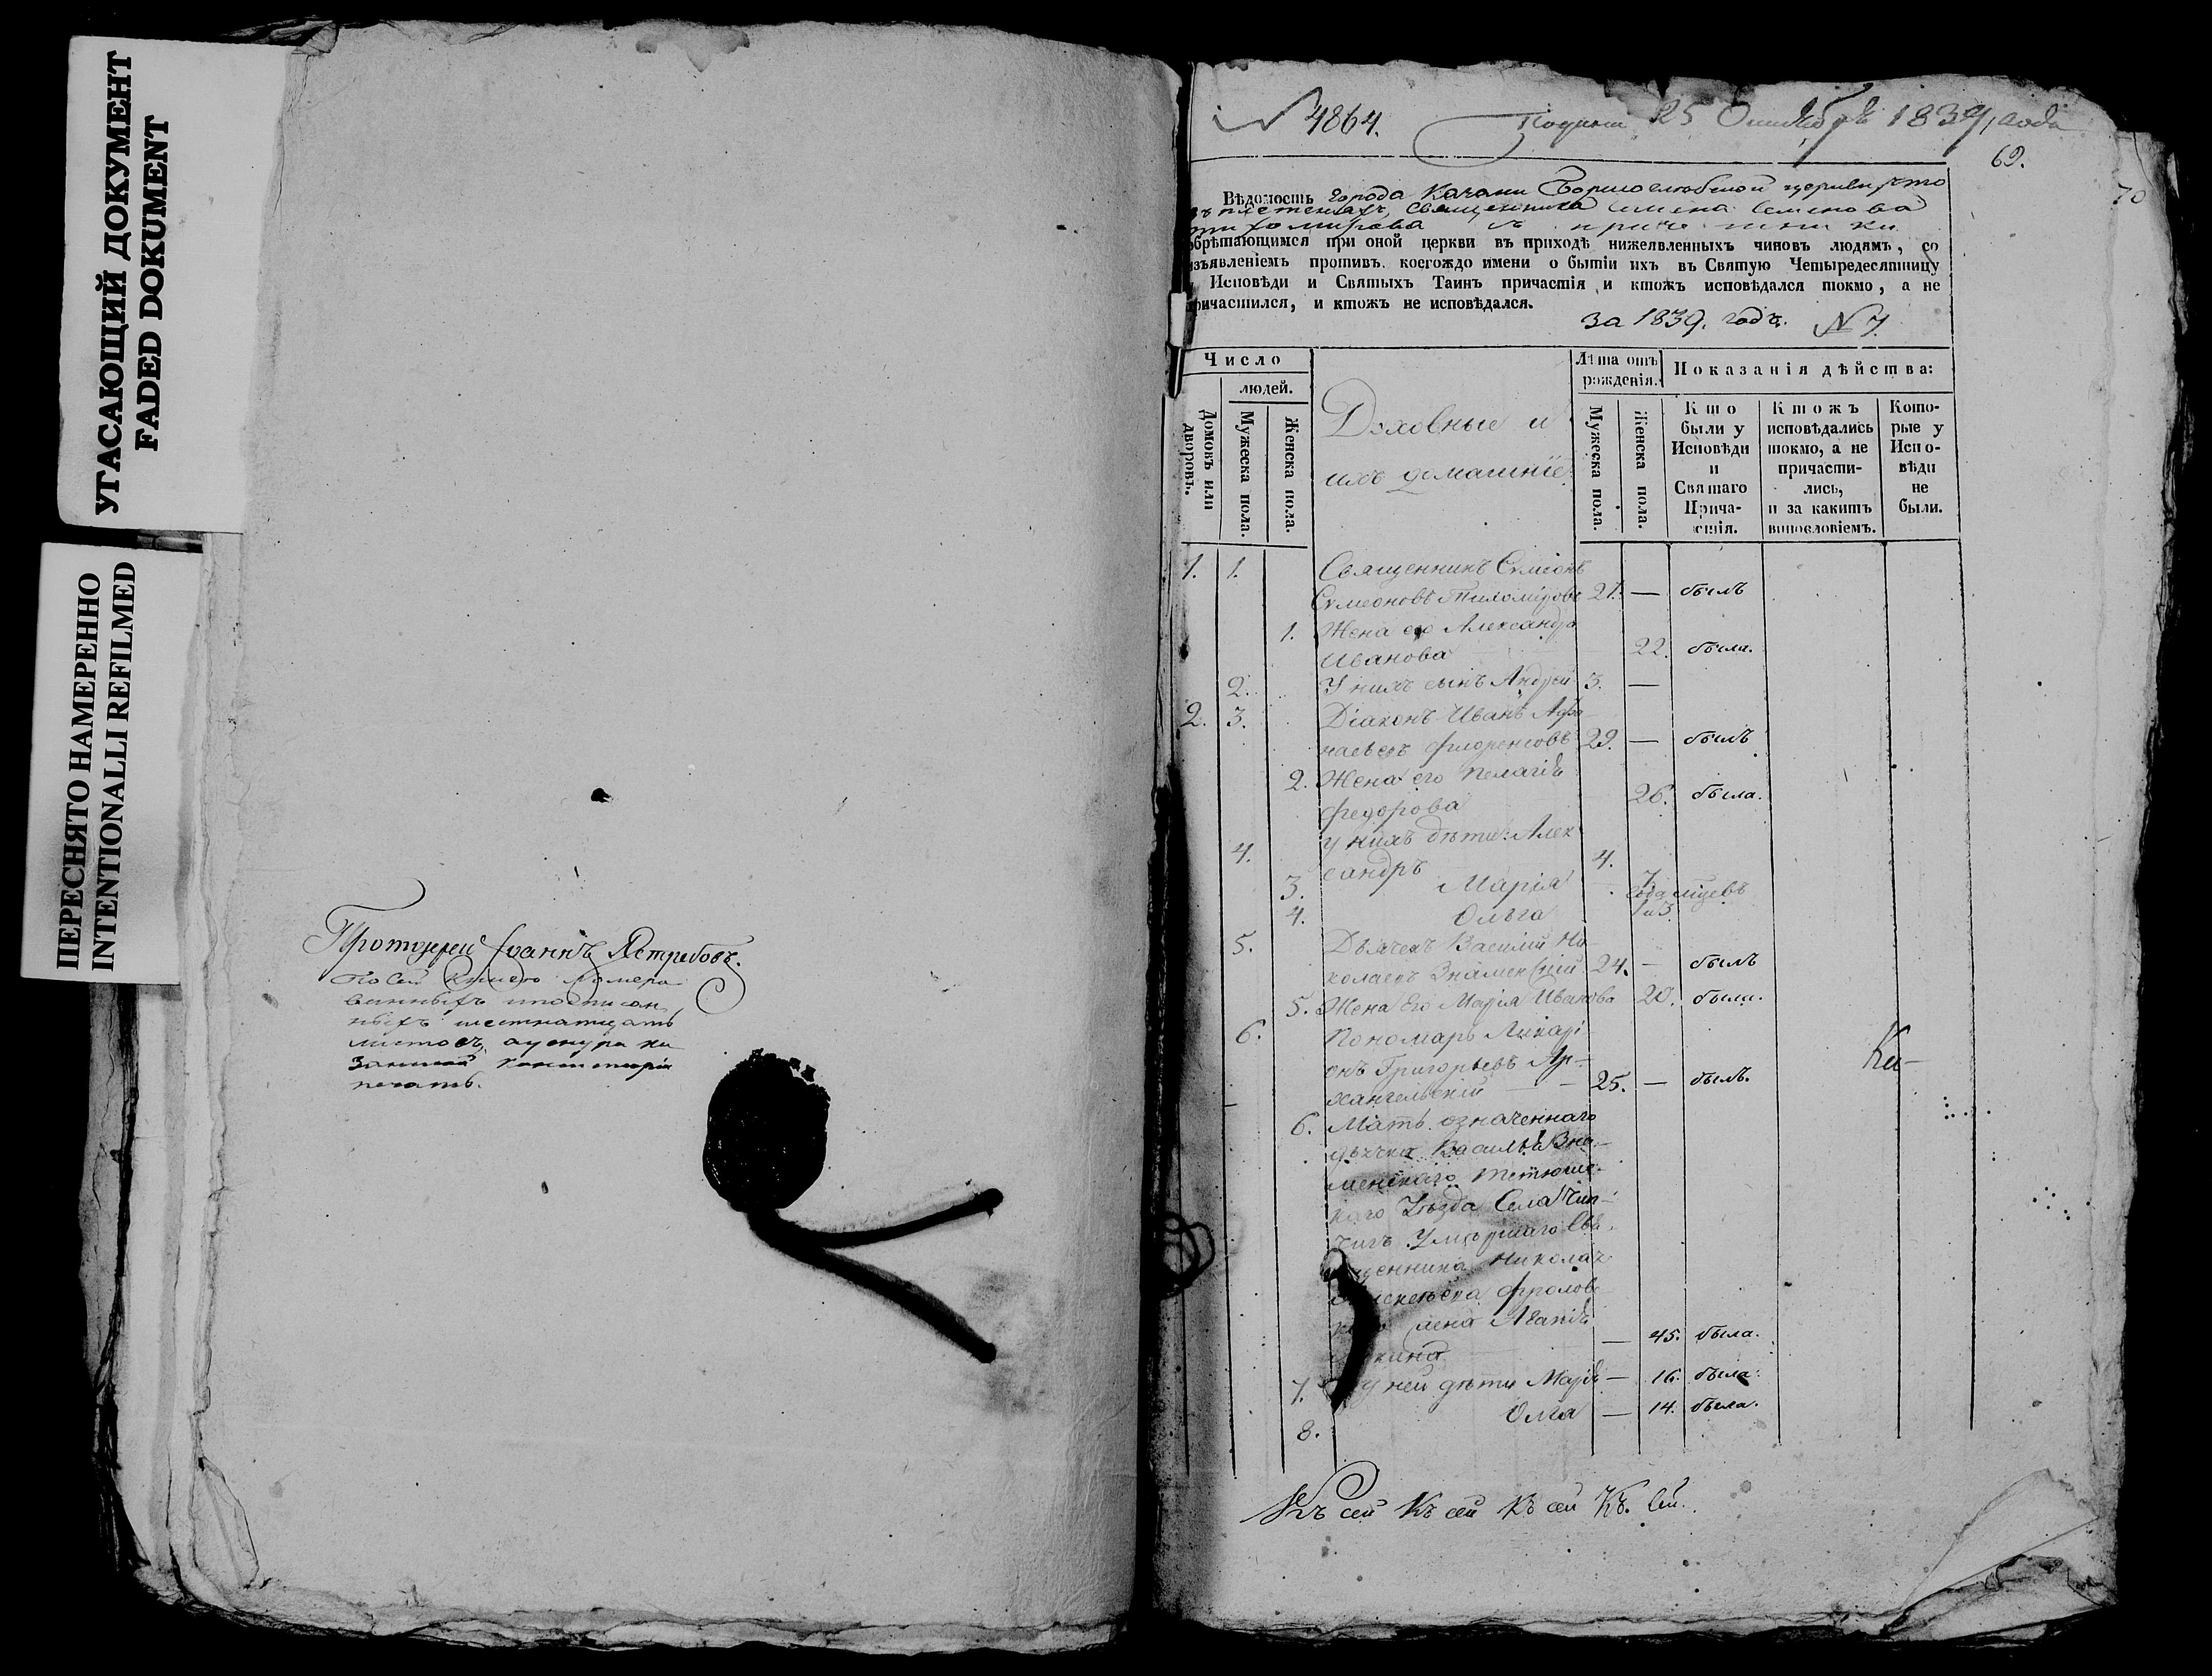 УГАСАЮЩИЙ ДОКУМЕНТ
FADED DOKUMENT
ПЕРЕСНЯТО НАМЕРЕННО
INTENTIONALLI REFILMED
Протоіерей Іоаннъ Ястребовъ.
По сей
листовъ
печать.
№ 4864.
25 1839 года
69.
70
Вѣдомость города Казани церкви что
въ плетеняхъ, Священника Семена Семенова
Тихомирова съ
обрѣтающимся при оной церкви въ приходѣ нижеявленныхъ чиновъ людямъ, со
изъявленіемъ противъ коегождо имени о бытіи ихъ въ Святую Четыредесятницу
Исповѣди и Святыхъ Таинъ причастія и ктожъ исповѣдался токмо, а не
причастился, и ктожъ не исповѣдался.
за 1839. годъ. № 7.
Число
людей.
Домовъ или дворовъ.
Мужеска пола.
Женска пола.
Духовные и
ихъ домашніе
Лѣта отъ рожденія.
Мужеска пола.
Женска пола.
Показанія дѣйства:
Кто были у Исповѣди и Святаго Прича-стія.
Ктожъ исповѣдались токмо, а не причасти-лись, и за какимъ винословіемъ.
Кото-рые у Испо-вѣди не были.
1. 1. Священникъ Сѵмеонъ
Сѵмеоновъ Тихоміровъ 27. — былъ
1. Жена его Александра
Иванова 22. была.
2. У нихъ сынъ Андрей 3. —
2. 3. Діаконъ Иванъ Афа
насьевъ Флоренсовъ 29. — былъ
2. Жена его Пелагія
Федорова 26. была.
4. у нихъ дѣти: Алек
сандръ 4.
3. Марія 7.
4. Ольга года мцевъ
1 и 3.
5. Дьячекъ Василій Ни
колаевъ Знаменскій 24. — былъ
5. Жена Его Марія Иванова 20. была.
6. Пономарь Иларі
онъ Григорьевъ Ар-
хангельскій 25. — былъ.
Ки-
6. Мать означеннаго
дьячка Василья Зна-
менскаго Тетюшс-
каго Уѣзда Села
Умершаго Свя
щенника Николая
Фролов
жена
— 45. была.
7. у ней дѣти Марія — 16. была.
8. Олга — 14. была.
Къ сей Къ сей Къ сей Къ. Сей.